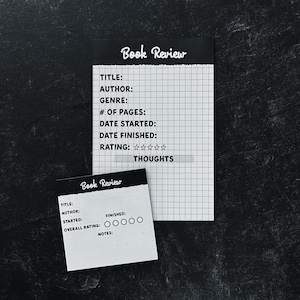 Book Review
TITLE:
AUTHOR:
GENRE:
# OF PAGES:
DATE STARTED:
DATE FINISHED:
RATING: ☆☆☆☆☆
THOUGHTS
Book Review
TITLE:
AUTHOR:
STARTED: FINISHED:
OVERALL RATING: ○○○○○
NOTES: